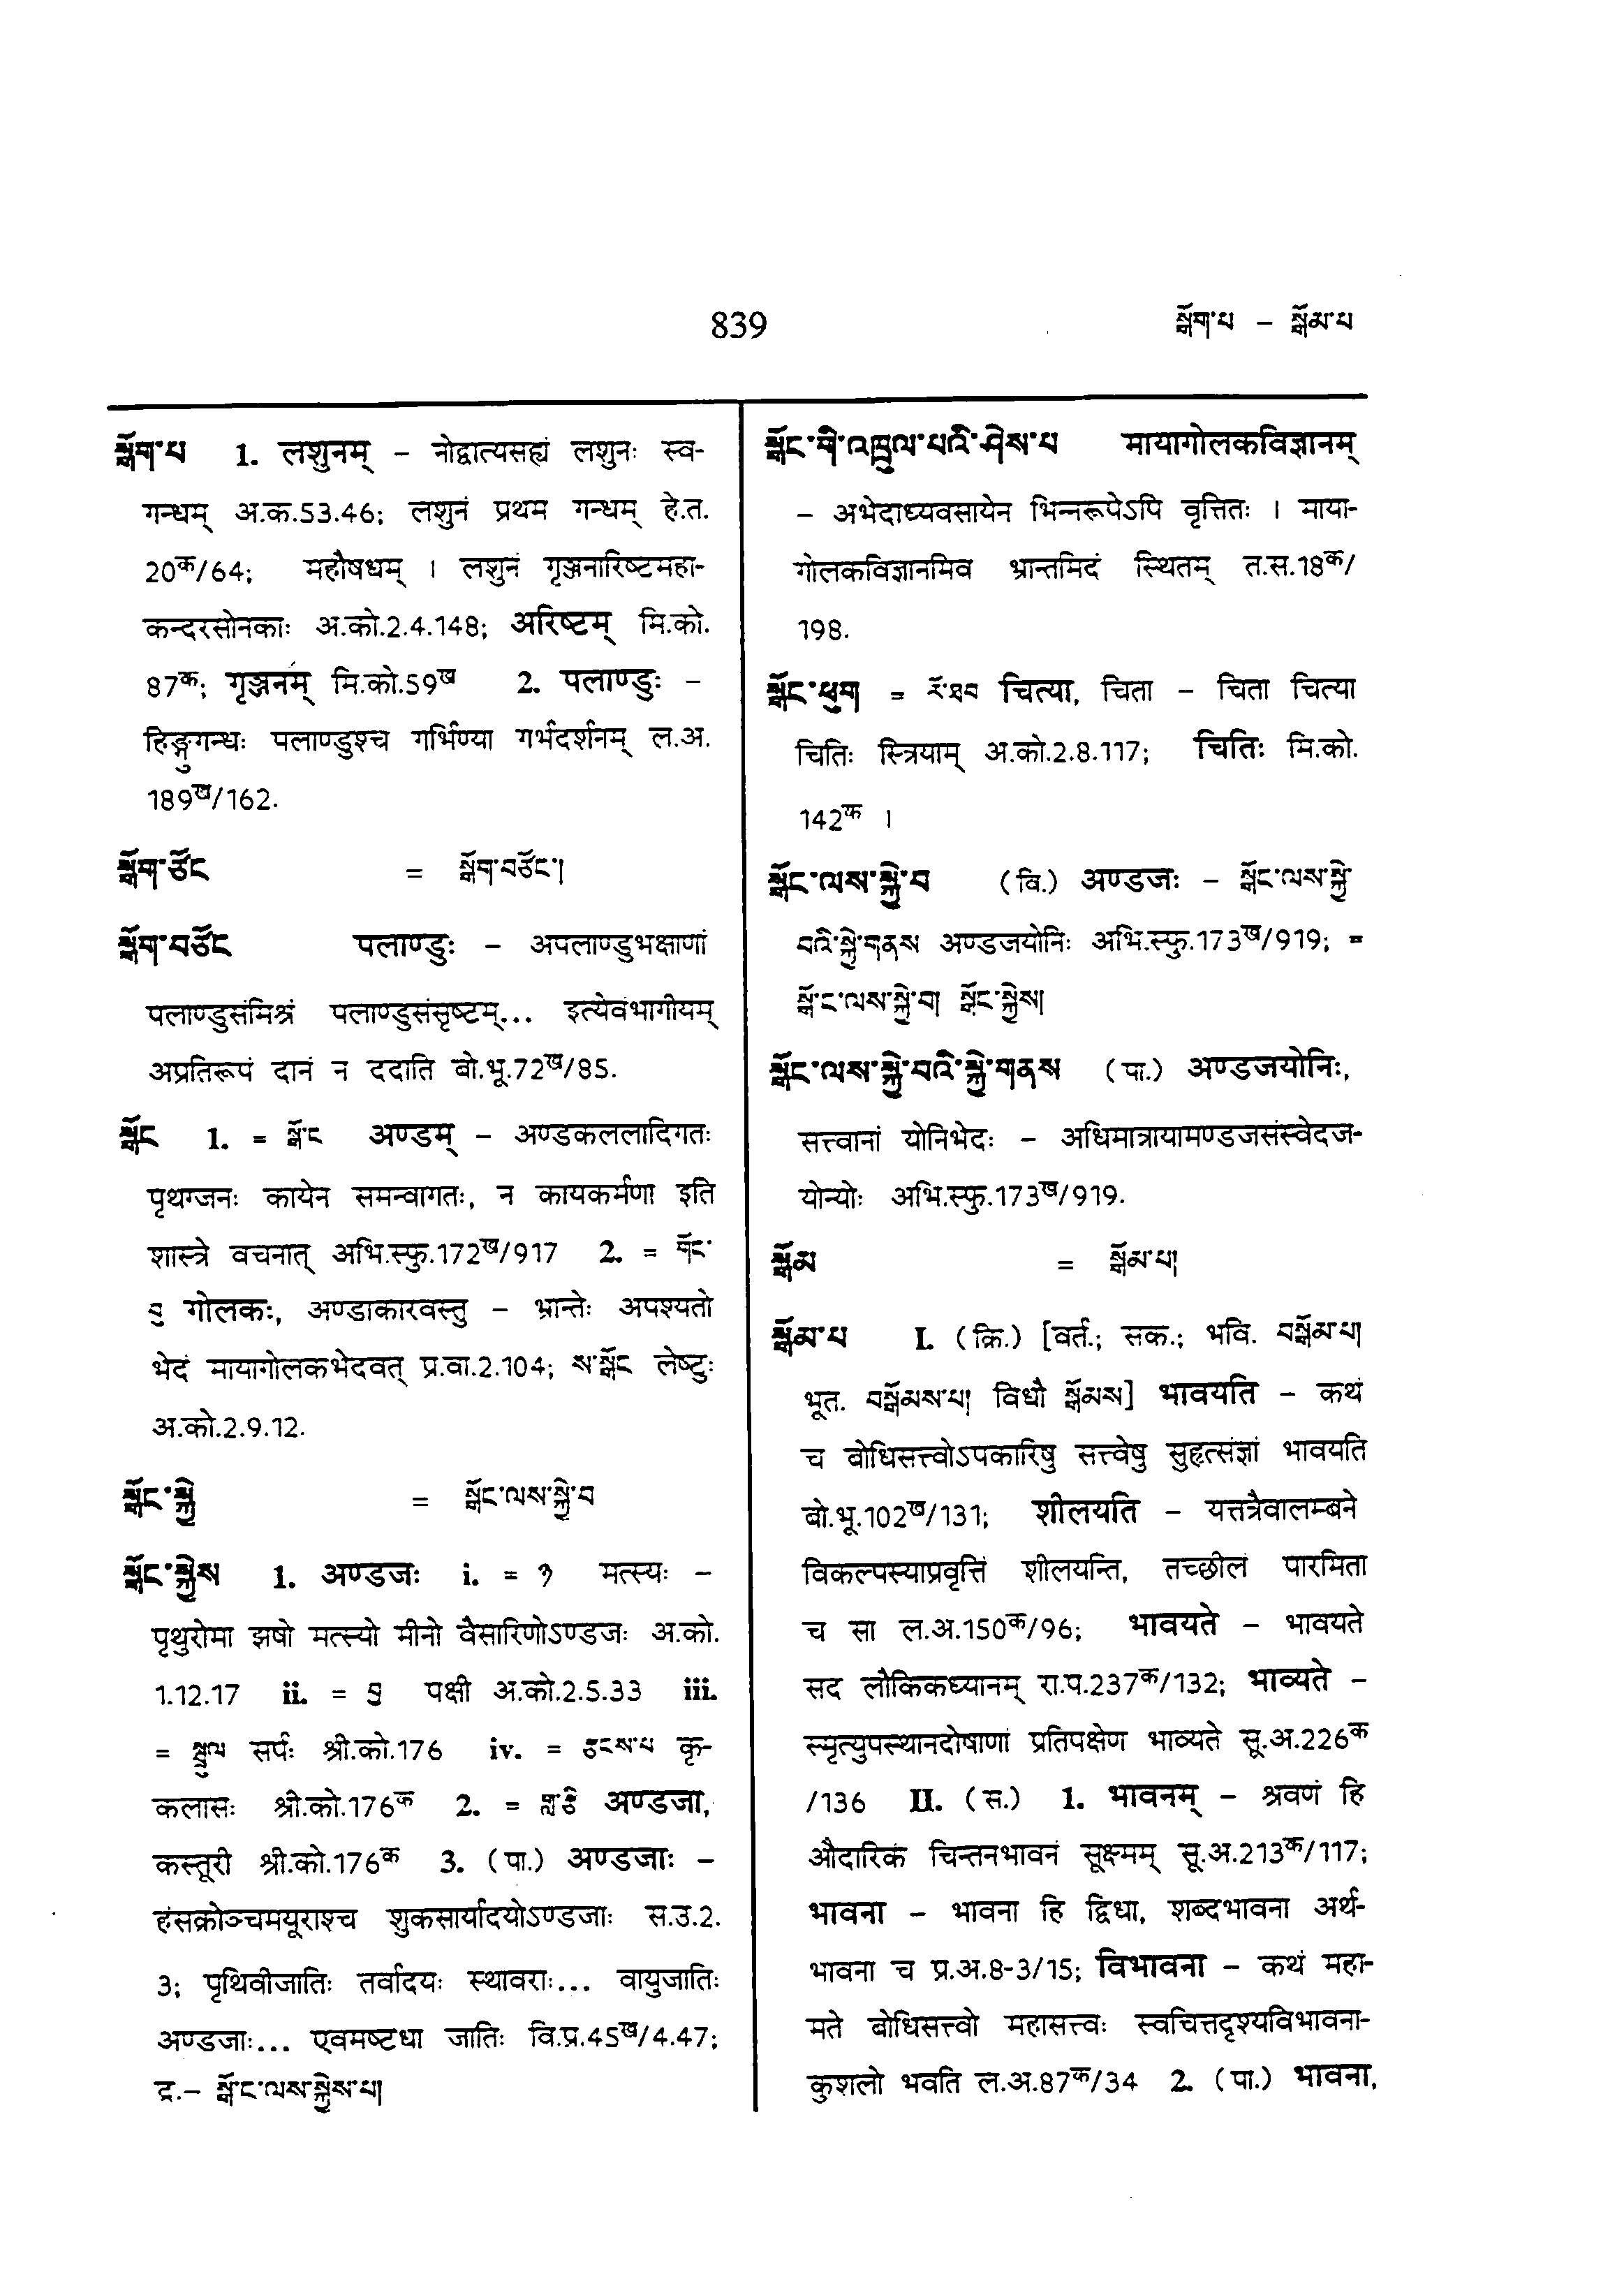 839
སྒོག་པ – སྒོམ་པ
སྒོག་པ 1. लशुनम् – नोद्वात्यसह्यं लशुनः स्व-
गन्धम् अ.क.53.46; लशुनं प्रथम गन्धम् हे.त.
20क/64; महौषधम् । लशुनं गृञ्जनारिष्टमहा-
कन्दरसोनकाः अ.को.2.4.148; अरिष्टम् मि.को.
87क; गृञ्जनम् मि.को.59ख 2. पलाण्डुः –
हिङ्गुगन्धः पलाण्डुश्च गर्भिण्या गर्भदर्शनम् ल.अ.
189ख/162.
སྒོག་ཙོང = སྒོག་བཙོང་།
སྒོག་བཙོང पलाण्डुः – अपलाण्डुभक्षाणां
पलाण्डुसंमिश्रं पलाण्डुसंसृष्टम्... इत्येवंभागीयम्
अप्रतिरूपं दानं न ददाति बो.भू.72ख/85.
སྒོང 1. = སྒོ་ང अण्डम् – अण्डकललादिगतः
पृथग्जनः कायेन समन्वागतः, न कायकर्मणा इति
शास्त्रे वचनात् अभि.स्फु.172ख/917 2. = གོང་
བུ गोलकः, अण्डाकारवस्तु – भ्रान्तेः अपश्यतो
भेदं मायागोलकभेदवत् प्र.वा.2.104; ས་སྒོང लेष्टुः
अ.को.2.9.12.
སྒོང་སྐྱེ = སྒོང་ལས་སྐྱེ་བ
སྒོང་སྐྱེས 1. अण्डजः i. = ཉ मत्स्यः –
पृथुरोमा झषो मत्स्यो मीनो वैसारिणोऽण्डजः अ.को.
1.12.17 ii. = བྱ पक्षी अ.को.2.5.33 iii.
= སྦྲུལ सर्पः श्री.को.176 iv. = ཅངས་པ कृ-
कलासः श्री.को.176क 2. = གླ་རྩི अण्डजा,
कस्तूरी श्री.को.176क 3. (पा.) अण्डजाः –
हंसक्रोञ्चमयूराश्च शुकसार्यादयोऽण्डजाः स.उ.2.
3; पृथिवीजातिः तर्वादयः स्थावराः... वायुजातिः
अण्डजाः... एवमष्टधा जातिः वि.प्र.45ख/4.47;
द्र.– སྒོ་ང་ལས་སྐྱེས་པ།
སྒོང་གི་འཁྲུལ་པའི་ཤེས་པ मायागोलकविज्ञानम्
– अभेदाध्यवसायेन भिन्नरूपेऽपि वृत्तितः । माया-
गोलकविज्ञानमिव भ्रान्तमिदं स्थितम् त.स.18क/
198.
སྒོང་ཕུག = རོ་ཐབ चित्या, चिता – चिता चित्या
चितिः स्त्रियाम् अ.को.2.8.117; चितिः मि.को.
142क ।
སྒོང་ལས་སྐྱེ་བ (वि.) अण्डजः – སྒོང་ལས་སྐྱེ་
བའི་སྐྱེ་གནས अण्डजयोनिः अभि.स्फु.173ख/919; =
སྒོ་ང་ལས་སྐྱེ་བ། སྒོང་སྐྱེས།
སྒོང་ལས་སྐྱེ་བའི་སྐྱེ་གནས (पा.) अण्डजयोनिः,
सत्त्वानां योनिभेदः – अधिमात्रायामण्डजसंस्वेदज-
योन्योः अभि.स्फु.173ख/919.
སྒོམ = སྒོམ་པ།
སྒོམ་པ I. (क्रि.) [वर्त.; सक.; भवि. བསྒོམ་པ།
भूत. བསྒོམས་པ། विधौ སྒོམས] भावयति – कथं
च बोधिसत्त्वोऽपकारिषु सत्त्वेषु सुहृत्संज्ञां भावयति
बो.भू.102ख/131; शीलयति – यत्तत्रैवालम्बने
विकल्पस्याप्रवृत्तिं शीलयन्ति, तच्छीलं पारमिता
च सा ल.अ.150क/96; भावयते – भावयते
सद लौकिकध्यानम् रा.प.237क/132; भाव्यते –
स्मृत्युपस्थानदोषाणां प्रतिपक्षेण भाव्यते सू.अ.226क
/136 II. (स.) 1. भावनम् – श्रवणं हि
औदारिकं चिन्तनभावनं सूक्ष्मम् सू.अ.213क/117;
भावना – भावना हि द्विधा, शब्दभावना अर्थ-
भावना च प्र.अ.8-3/15; विभावना – कथं महा-
मते बोधिसत्त्वो महासत्त्वः स्वचित्तदृश्यविभावना-
कुशलो भवति ल.अ.87क/34 2. (पा.) भावना,